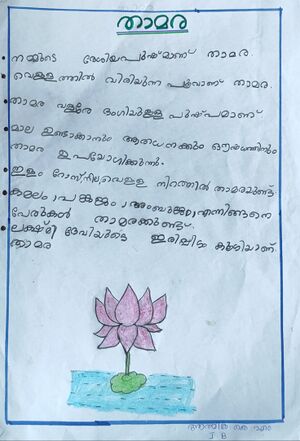 താമര
നമ്മുടെ ദേശീയപുഷ്പമാണ് താമര.
വെള്ളത്തിൽ വിരിയുന്ന പൂവാണ് താമര.
താമര വളരെ ഭംഗിയുള്ള പുഷ്പമാണ്.
മാല ഉണ്ടാക്കാനും ആരാധനക്കും ഔഷധത്തിനും
താമര ഉപയോഗിക്കുന്നു.
ഇളം റോസ്, നീല, വെള്ള നിറത്തിൽ താമരയുണ്ട്.
കമലം, പങ്കജം, അംബുജം എന്നിങ്ങനെ
പേരുകൾ താമരക്കുണ്ട്.
ലക്ഷ്മി ദേവിയുടെ ഇരിപ്പിടം കൂടിയാണ്
താമര
I B